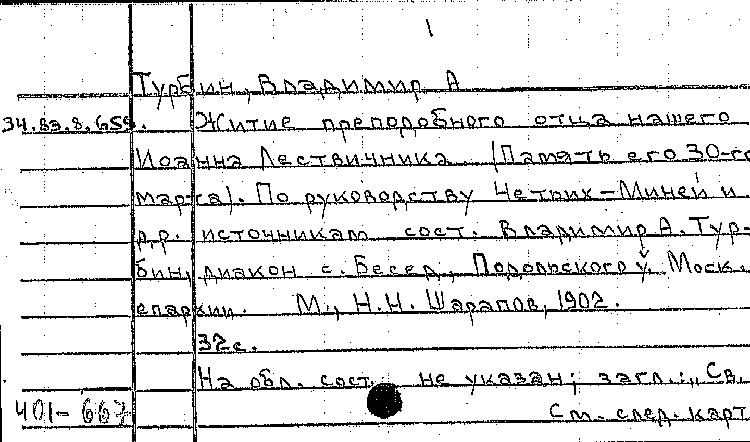 1
Турбин, Владимир А
34.83.8.659. Житие преподобного отца нашего
Иоанна Лествичника. (Память его 30-го
марта). По руководству Четьих-Миней и
др. источникам сост. Владимир А. Тур-
бин, диакон с. Бесед, Подольского у. Моск.
епархии. М., Н.Н. Шарапов, 1902.
32с.
На обл. сост. не указан; загл.: „Св.
401-667 См. след. карт